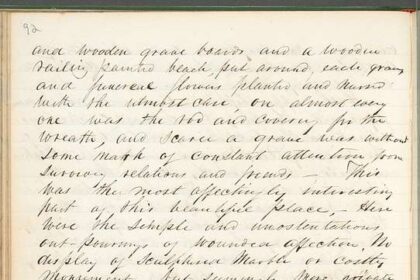 92
and wooden grave boards and a wooden
railing painted beach, put around each grave
and funereal flowers planted and nursed
with the utmost care, on almost every
one was the rod and covering for the
wreath, and scarce a grave was without
some mark of constant attention from
surviving relations and friends — This
was the most affectively interesting
part of this beautiful place, — Here
were the simple and unostentatious
out-pourings of wounded affection, No
display of sculptured Marble or costly
Monument, but